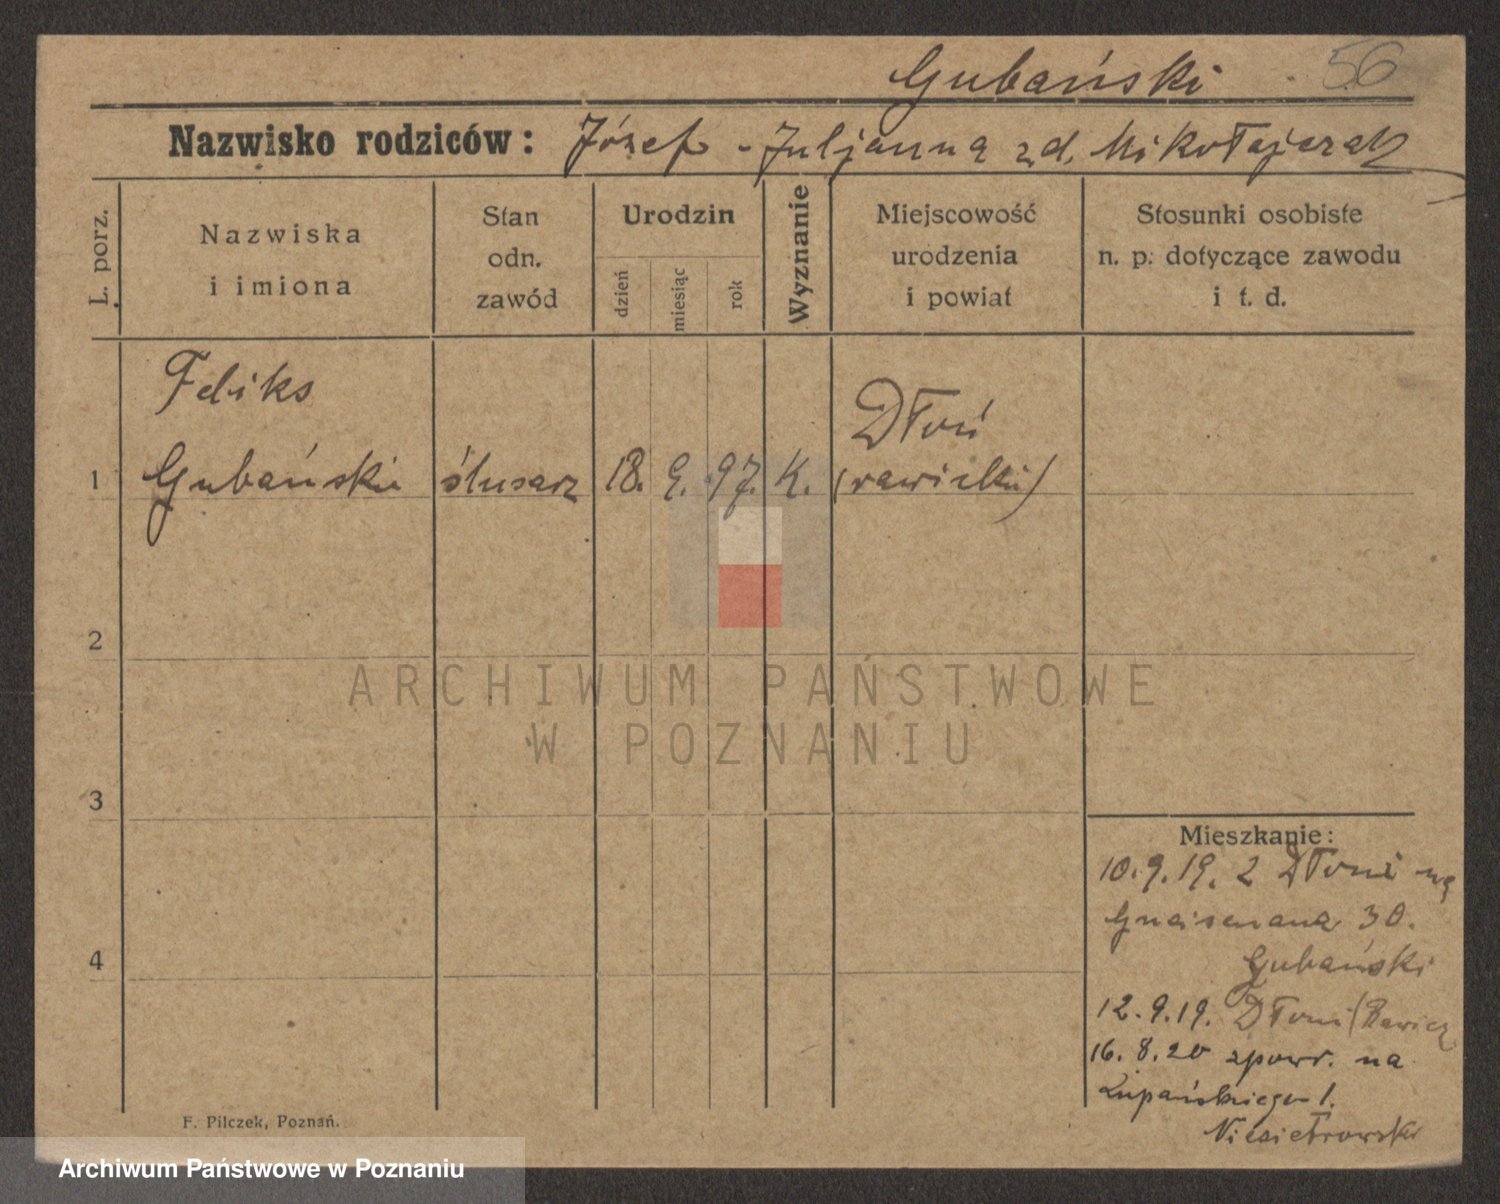 Gubański 56
Nazwisko rodziców: Józef - Juljanna z d. Mikołajczak
L. porz.
Nazwiska
i imiona
Stan
odn.
zawód
Urodzin
dzień
miesiąc
rok
Wyznanie
Miejscowość
urodzenia
i powiat
Stosunki osobiste
n. p. dotyczące zawodu
i t. d.
Feliks
Dłoń
1 Gubański ślusarz 18. 9. 97. K. (rawicki)
2
ARCHIWUM PAŃSTWOWE
W POZNANIU
3
Mieszkanie:
10.9.19. z Dłoni na
Gneisenaua 30.
4
Gubański
12.9.19. Dłoni (Rawicz
16.8.20 zpowr. na
Łupańskiego 1.
F. Pilczek, Poznań.
Archiwum Państwowe w Poznaniu